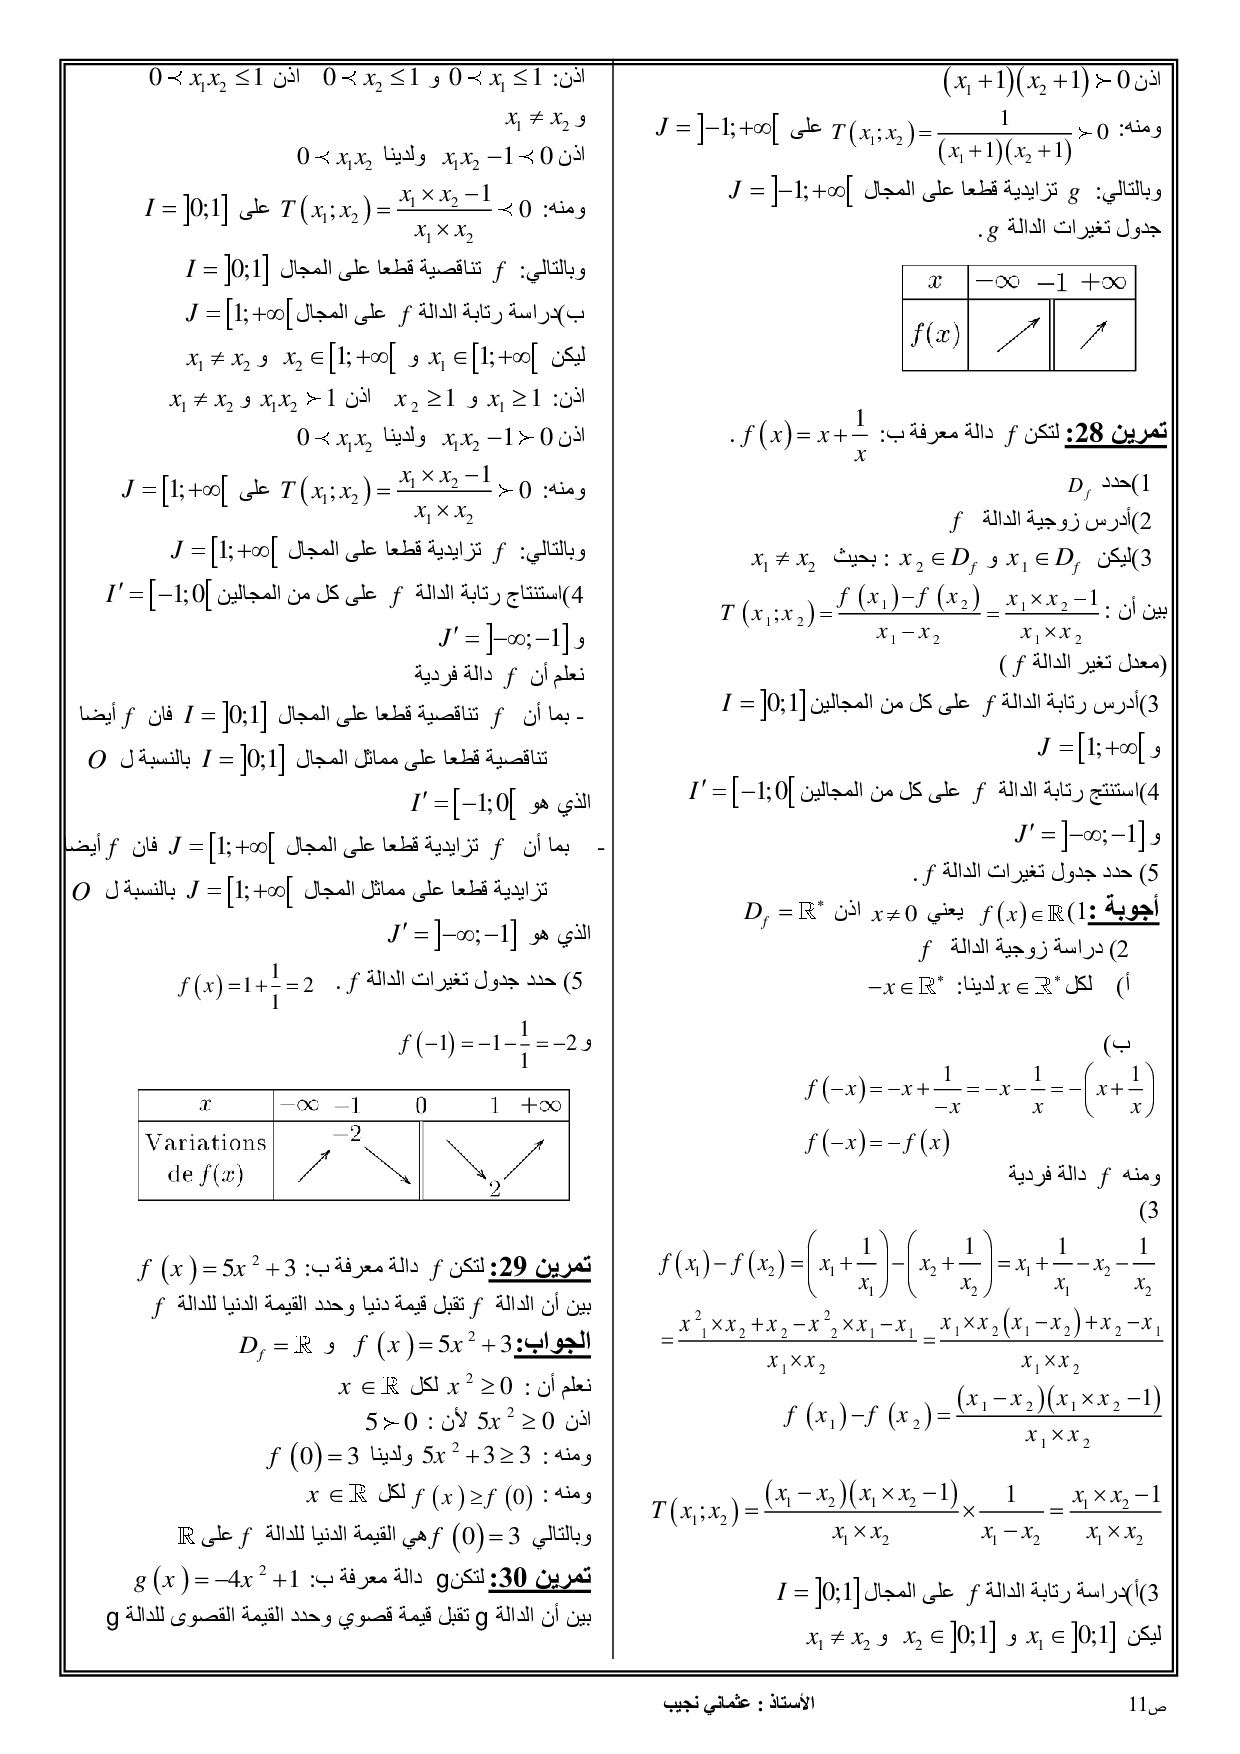 اذن (x₁ + 1)(x₂ + 1) ≻ 0
ومنه: T(x₁; x₂) = 1 / ((x₁ + 1)(x₂ + 1)) ≻ 0 على J = ]−1; +∞[
وبالتالي: g تزايدية قطعا على المجال J = ]−1; +∞[
جدول تغيرات الدالة g .
x −∞ −1 +∞
f(x)
تمرين 28: لتكن f دالة معرفة ب: f(x) = x + 1/x .
1)حدد D_f
2)أدرس زوجية الدالة f
3)ليكن x₁ ∈ D_f و x₂ ∈ D_f : بحيث x₁ ≠ x₂
بين أن : T(x₁; x₂) = (f(x₁) − f(x₂)) / (x₁ − x₂) = (x₁ × x₂ − 1) / (x₁ × x₂)
(معدل تغير الدالة f )
3)أدرس رتابة الدالة f على كل من المجالين I = ]0;1]
و J = [1; +∞[
4)استنتج رتابة الدالة f على كل من المجالين I′ = [−1;0[
و J′ = ]−∞; −1]
5) حدد جدول تغيرات الدالة f .
أجوبة :1) f(x) ∈ ℝ يعني x ≠ 0 اذن D_f = ℝ*
2) دراسة زوجية الدالة f
أ) لكل x ∈ ℝ* لدينا: −x ∈ ℝ*
ب)
f(−x) = −x + 1/(−x) = −x − 1/x = −(x + 1/x)
f(−x) = −f(x)
ومنه f دالة فردية
3)
f(x₁) − f(x₂) = (x₁ + 1/x₁) − (x₂ + 1/x₂) = x₁ + 1/x₁ − x₂ − 1/x₂
= (x₁² × x₂ + x₂ − x₂² × x₁ − x₁) / (x₁ × x₂) = (x₁ × x₂(x₁ − x₂) + x₂ − x₁) / (x₁ × x₂)
f(x₁) − f(x₂) = (x₁ − x₂)(x₁ × x₂ − 1) / (x₁ × x₂)
T(x₁; x₂) = (x₁ − x₂)(x₁ × x₂ − 1) / (x₁ × x₂) × 1 / (x₁ − x₂) = (x₁ × x₂ − 1) / (x₁ × x₂)
3)أ)دراسة رتابة الدالة f على المجال I = ]0;1]
ليكن x₁ ∈ ]0;1] و x₂ ∈ ]0;1] و x₁ ≠ x₂
اذن: 0 ≺ x₁ ≤ 1 و 0 ≺ x₂ ≤ 1 اذن 0 ≺ x₁x₂ ≤ 1
و x₁ ≠ x₂
اذن x₁x₂ − 1 ≺ 0 ولدينا 0 ≺ x₁x₂
ومنه: T(x₁; x₂) = (x₁ × x₂ − 1) / (x₁ × x₂) ≺ 0 على I = ]0;1]
وبالتالي: f تناقصية قطعا على المجال I = ]0;1]
ب)دراسة رتابة الدالة f على المجال J = [1; +∞[
ليكن x₁ ∈ [1; +∞[ و x₂ ∈ [1; +∞[ و x₁ ≠ x₂
اذن: x₁ ≥ 1 و x₂ ≥ 1 اذن x₁x₂ ≻ 1 و x₁ ≠ x₂
اذن x₁x₂ − 1 ≻ 0 ولدينا 0 ≺ x₁x₂
ومنه: T(x₁; x₂) = (x₁ × x₂ − 1) / (x₁ × x₂) ≻ 0 على J = [1; +∞[
وبالتالي: f تزايدية قطعا على المجال J = [1; +∞[
4)استنتاج رتابة الدالة f على كل من المجالين I′ = [−1;0[
و J′ = ]−∞; −1]
نعلم أن f دالة فردية
- بما أن f تناقصية قطعا على المجال I = ]0;1] فان f أيضا
تناقصية قطعا على مماثل المجال I = ]0;1] بالنسبة ل O
الذي هو I′ = [−1;0[
- بما أن f تزايدية قطعا على المجال J = [1; +∞[ فان f أيضا
تزايدية قطعا على مماثل المجال J = [1; +∞[ بالنسبة ل O
الذي هو J′ = ]−∞; −1]
5) حدد جدول تغيرات الدالة f . f(x) = 1 + 1/1 = 2
و f(−1) = −1 − 1/1 = −2
x −∞ −1 0 1 +∞
Variations de f(x) −2 2
تمرين 29: لتكن f دالة معرفة ب: f(x) = 5x² + 3
بين أن الدالة f تقبل قيمة دنيا وحدد القيمة الدنيا للدالة f
الجواب: f(x) = 5x² + 3 و D_f = ℝ
نعلم أن : x² ≥ 0 لكل x ∈ ℝ
اذن 5x² ≥ 0 لأن : 5 ≻ 0
ومنه : 5x² + 3 ≥ 3 ولدينا f(0) = 3
ومنه : f(x) ≥ f(0) لكل x ∈ ℝ
وبالتالي f(0) = 3 هي القيمة الدنيا للدالة f على ℝ
تمرين 30: لتكن g دالة معرفة ب: g(x) = −4x² + 1
بين أن الدالة g تقبل قيمة قصوي وحدد القيمة القصوى للدالة g
ص11 الأستاذ : عثماني نجيب